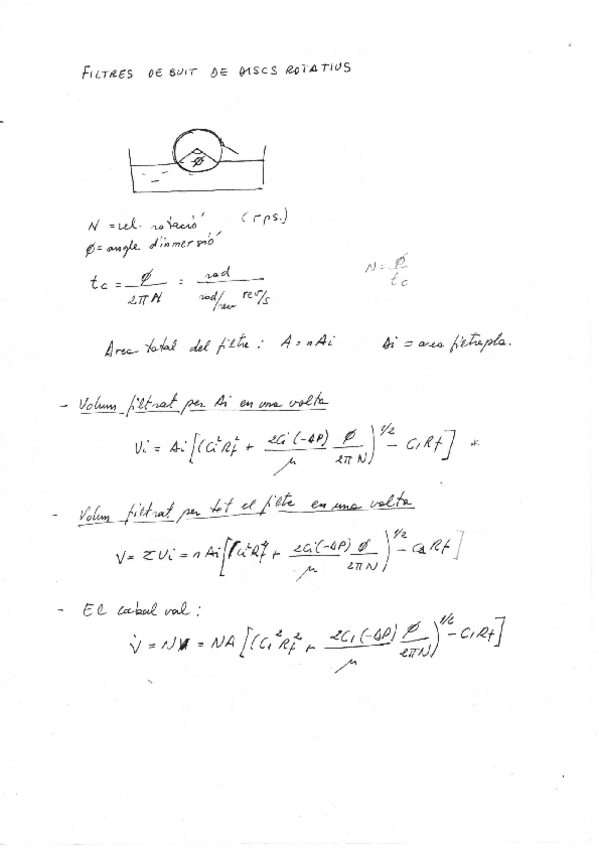 FILTRES DE BUIT DE DISCS ROTATIUS
Ø
N = vel. rotació (rps.)
Ø = angle d'inmersió
tc = Ø / 2πN = rad / rad/rev rev/s
N = Ø / tc
Area total del filtre : A = nAi Ai = area filtrepla.
- Volum filtrat per Ai en una volta
Vi = Ai [(Ci²Rf² + 2Ci(-ΔP)/μ Ø/2πN)^1/2 - CiRf] *
- Volum filtrat per tot el filtre en una volta
V = ΣVi = nAi [(Ci²Rf² + 2Ci(-ΔP)/μ Ø/2πN)^1/2 - CiRf]
- El cabal val :
V̇ = NV = NA [(Ci²Rf² + 2Ci(-ΔP)/μ Ø/2πN)^1/2 - CiRf]